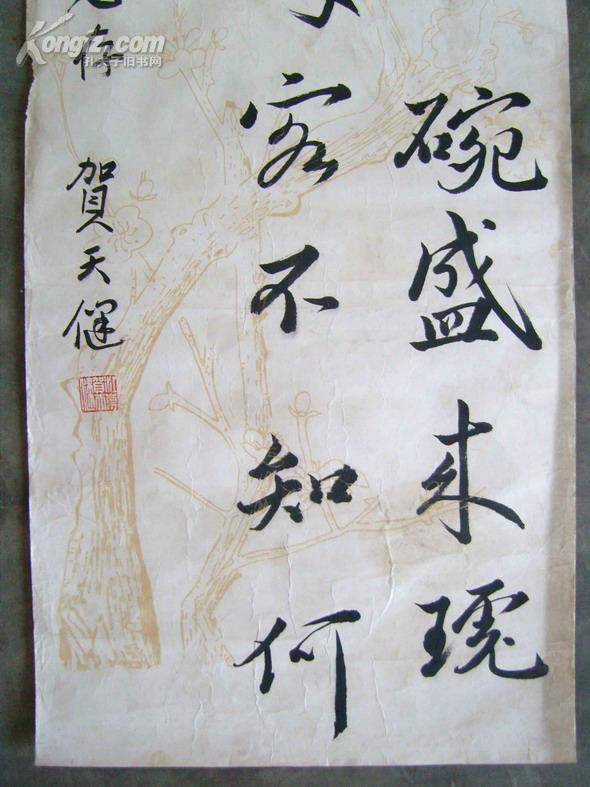 碗盛来琥
客不知何
存
賀天健
Kongfz.com
孔夫子旧书网